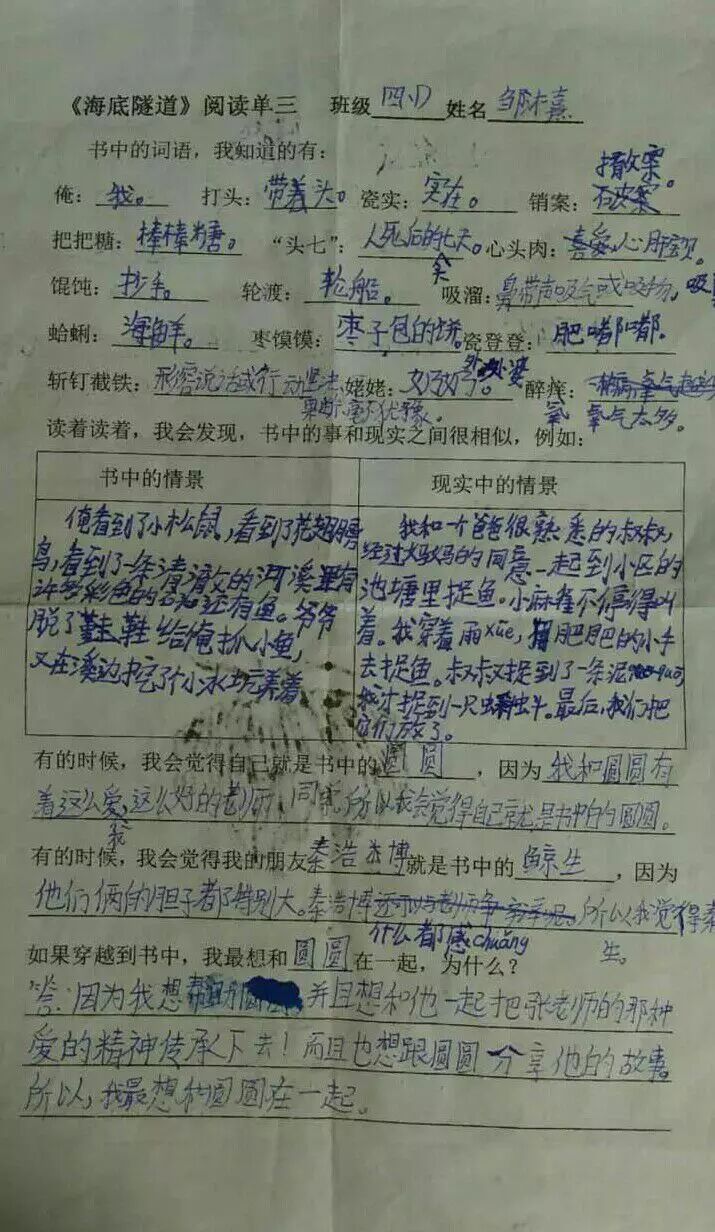 《海底隧道》阅读单三 班级四(1) 姓名邹沐熹
书中的词语，我知道的有：
撤案。
俺：我。 打头：带着头。 瓷实：实在。 销案：
把把糖：棒棒糖。 “头七”：人死后的七天。 心头肉：喜爱，心肝宝贝。
馄饨：抄手。 轮渡：轮船。 吸溜：鼻带声吸气或吸物，
蛤蜊：海鲜。 枣馍馍：枣子包的饼。 瓷登登：肥嘟嘟。
斩钉截铁：形容说话或行动坚决果断，毫不犹豫。 姥姥：外婆 醉痒：氧气太多。
读着读着，我会发现，书中的事和现实之间很相似，例如：
书中的情景 现实中的情景
俺看到了小松鼠，看到了花翅膀
鸟，看到了一条清清的河溪里有
许多彩色的石和还有鱼。爷爷
脱了鞋给俺抓小鱼，
又在溪边挖了个小水坑养着
我和一个爸爸很熟悉的叔叔，
经过妈妈的同意一起到小区的
池塘里捉鱼。小麻雀不停得叫
着。我穿着雨xüe，用肥肥的小手
去捉鱼。叔叔捉到了一条泥
我才捉到一只蝌蚪。最后，我们把
它们放了。
有的时候，我会觉得自己就是书中的圆圆，因为我和圆圆有
着这么爱我，这么好的老师、同学，所以我会觉得自己就是书中的圆圆。
有的时候，我会觉得我的朋友秦浩博就是书中的鲸生，因为
他们俩的胆子都特别大。秦浩博什么都感chuǎng 所以我觉得秦
生。
如果穿越到书中，我最想和圆圆在一起，为什么？
答：因为我想 并且想和他一起把张老师的那种
爱的精神传承下去！而且也想跟圆圆分享他的故事。
所以，我最想和圆圆在一起。